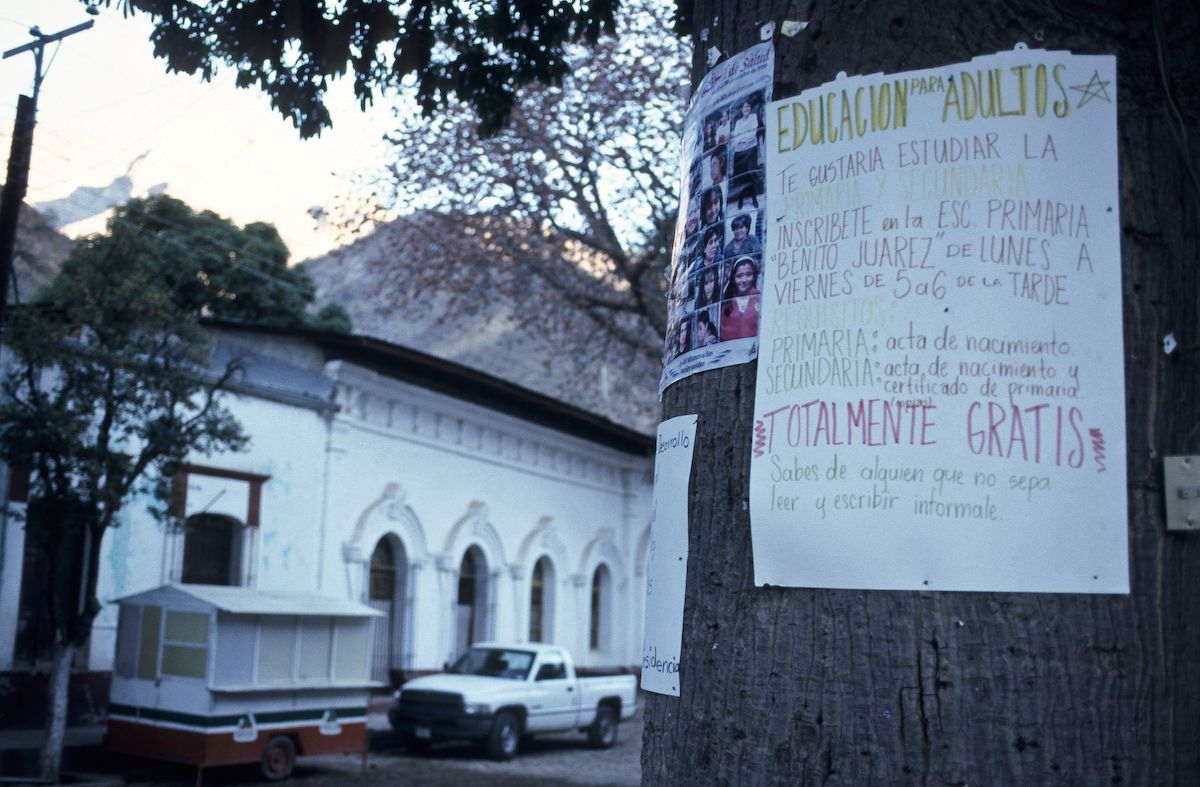 de Salud
EDUCACION PARA ADULTOS
TE GUSTARIA ESTUDIAR LA
PRIMARIA Y SECUNDARIA
INSCRIBETE en la ESC. PRIMARIA
"BENITO JUAREZ" DE LUNES A
VIERNES DE 5 a 6 DE LA TARDE
REQUISITOS:
PRIMARIA: acta de nacimiento.
SECUNDARIA: acta de nacimiento y
certificado de primaria.
(copias)
TOTALMENTE GRATIS
Sabes de alguien que no sepa
leer y escribir informale.
Desarrollo
esidencia